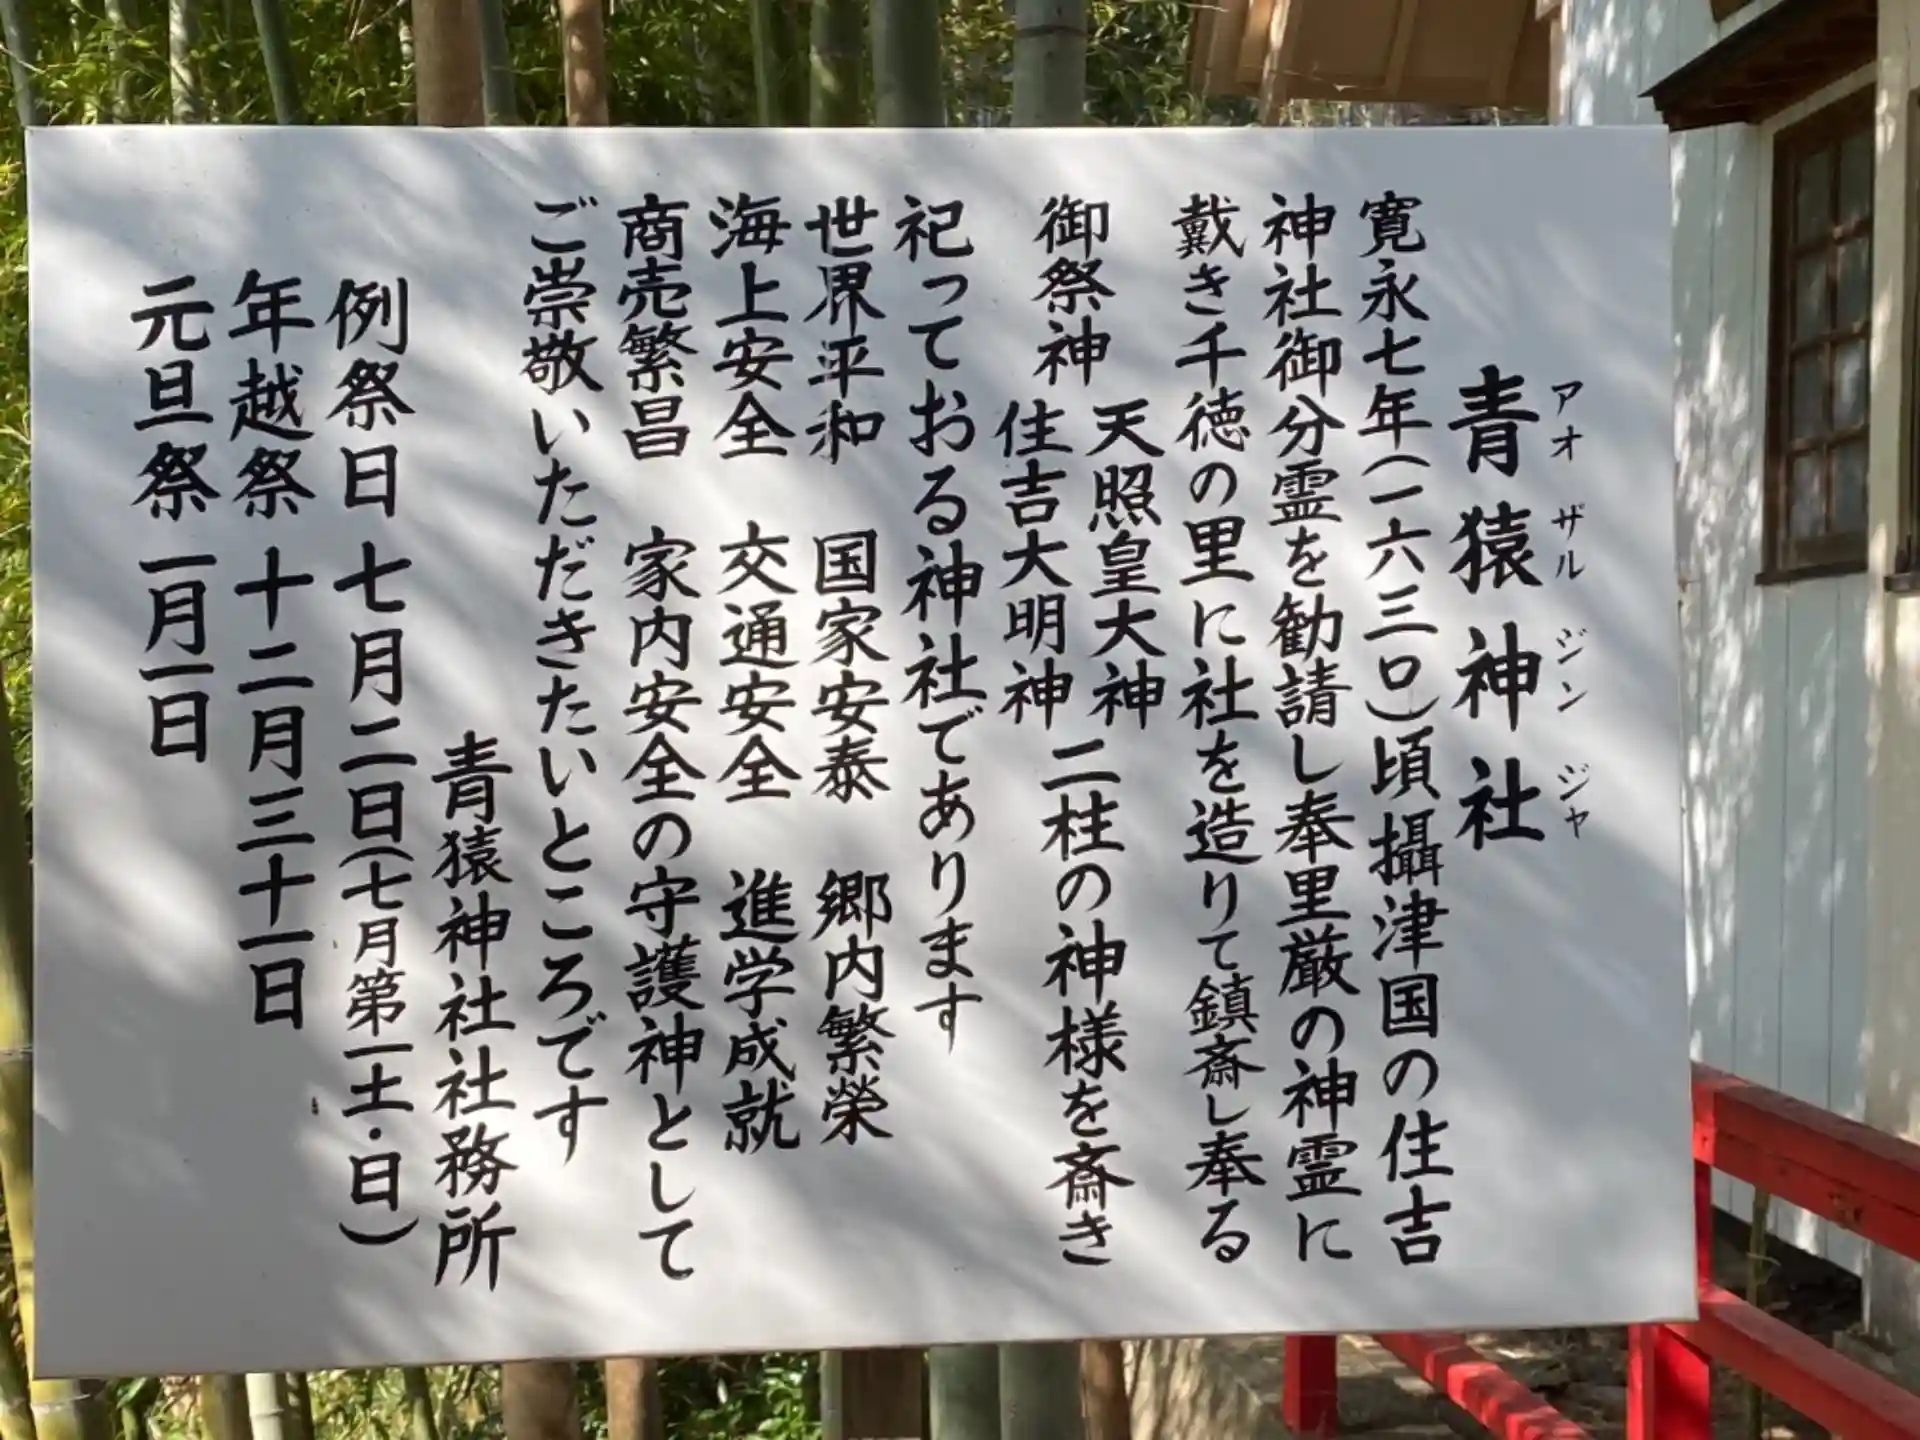 青猿神社
アオザルジンジャ
寛永七年(一六三〇)頃攝津国の住吉
神社御分霊を勧請し奉里厳の神霊に
戴き千徳の里に社を造りて鎮斎し奉る
御祭神
天照皇大神
住吉大明神
二柱の神様を斎き
祀っておる神社であります
世界平和 国家安泰 郷内繁榮
海上安全 交通安全 進学成就
商売繁昌 家内安全の守護神として
ご崇敬いただきたいところです
青猿神社社務所
例祭日 七月二日(七月第一土・日)
年越祭 十二月三十一日
元旦祭 一月一日